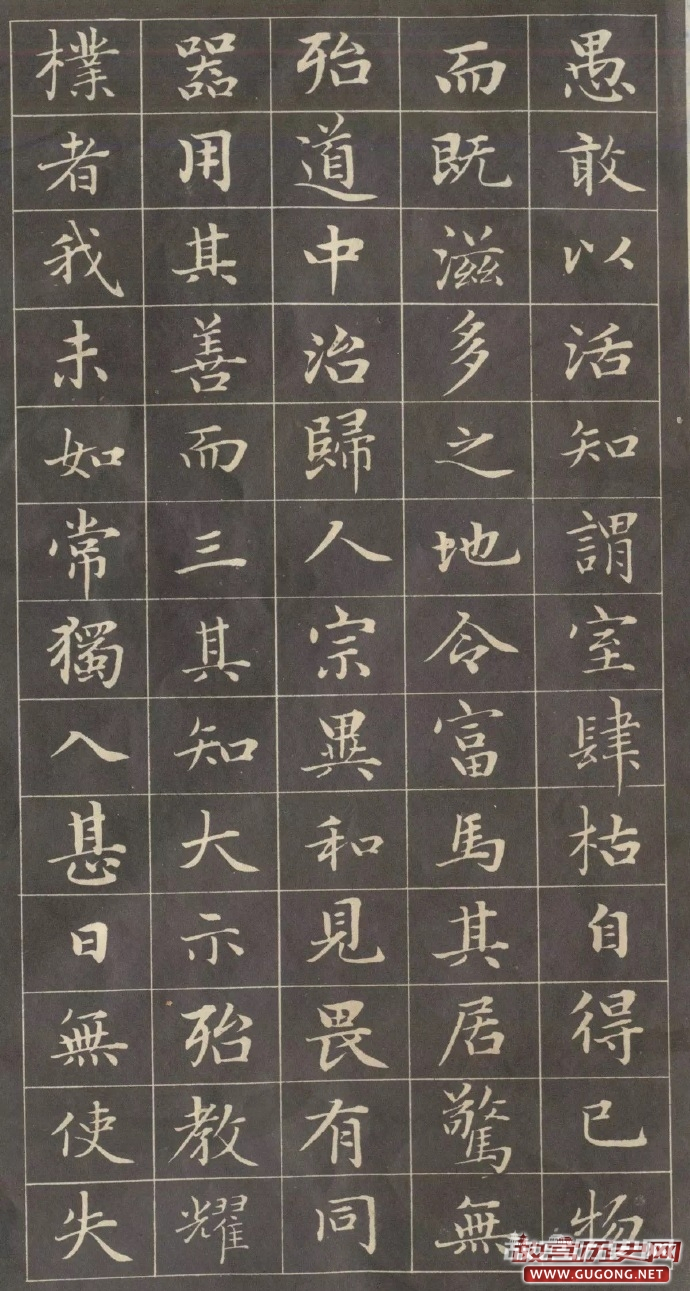 愚敢以活知謂室肆枯自得已物
而既滋多之地令富馬其居驚無
殆道中治歸人宗異和見畏有同
器用其善而三其知大示殆教耀
樸者我未如常獨入甚日無使失
故宫历史网
WWW.GUGONG.NET